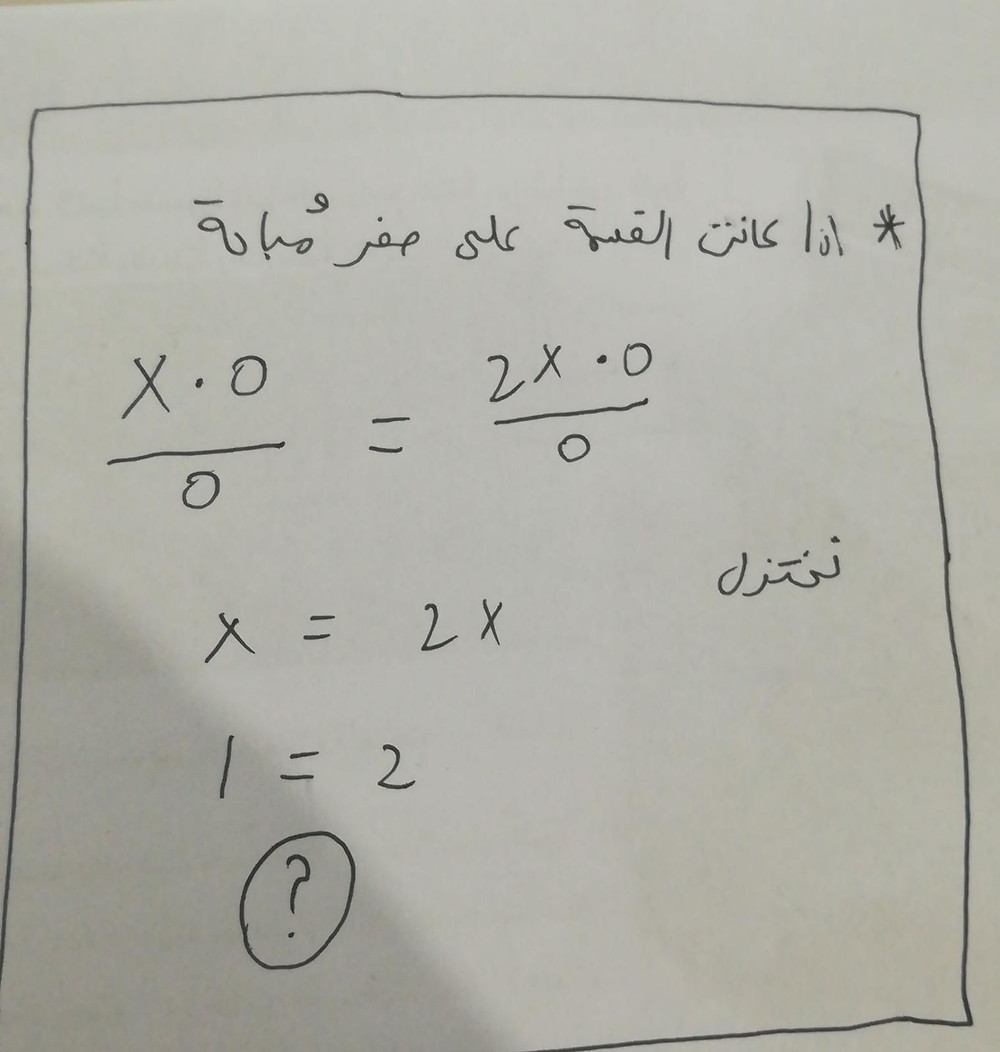 * اذا كانت القسمة على صفر مُباحة
X · 0 / 0 = 2X · 0 / 0
نختزل
X = 2X
1 = 2
?